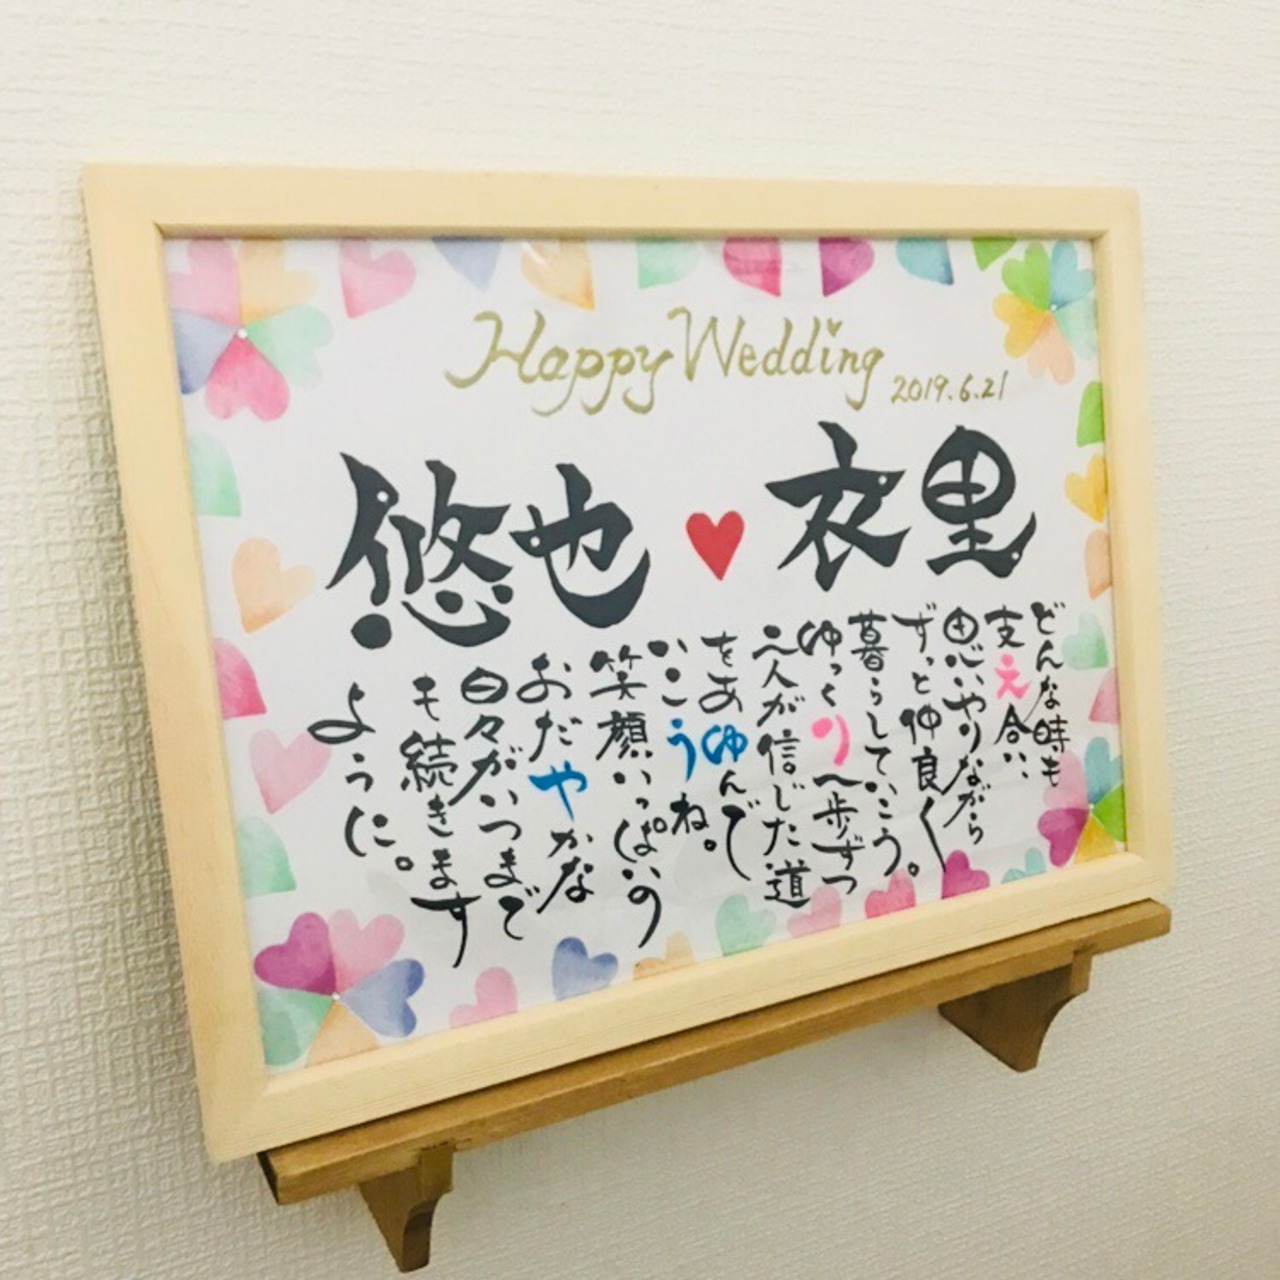 Happy Wedding
2019.6.21
悠也♥衣里
どんな時も
支え合い
思いやりながら
ずっと仲良く
暮らしていこう。
ゆっくり一歩ずつ
二人が信じた道
をあゆんで
いこうね。
笑顔いっぱいの
おだやかな
日々がいつまで
も続きます
ように。